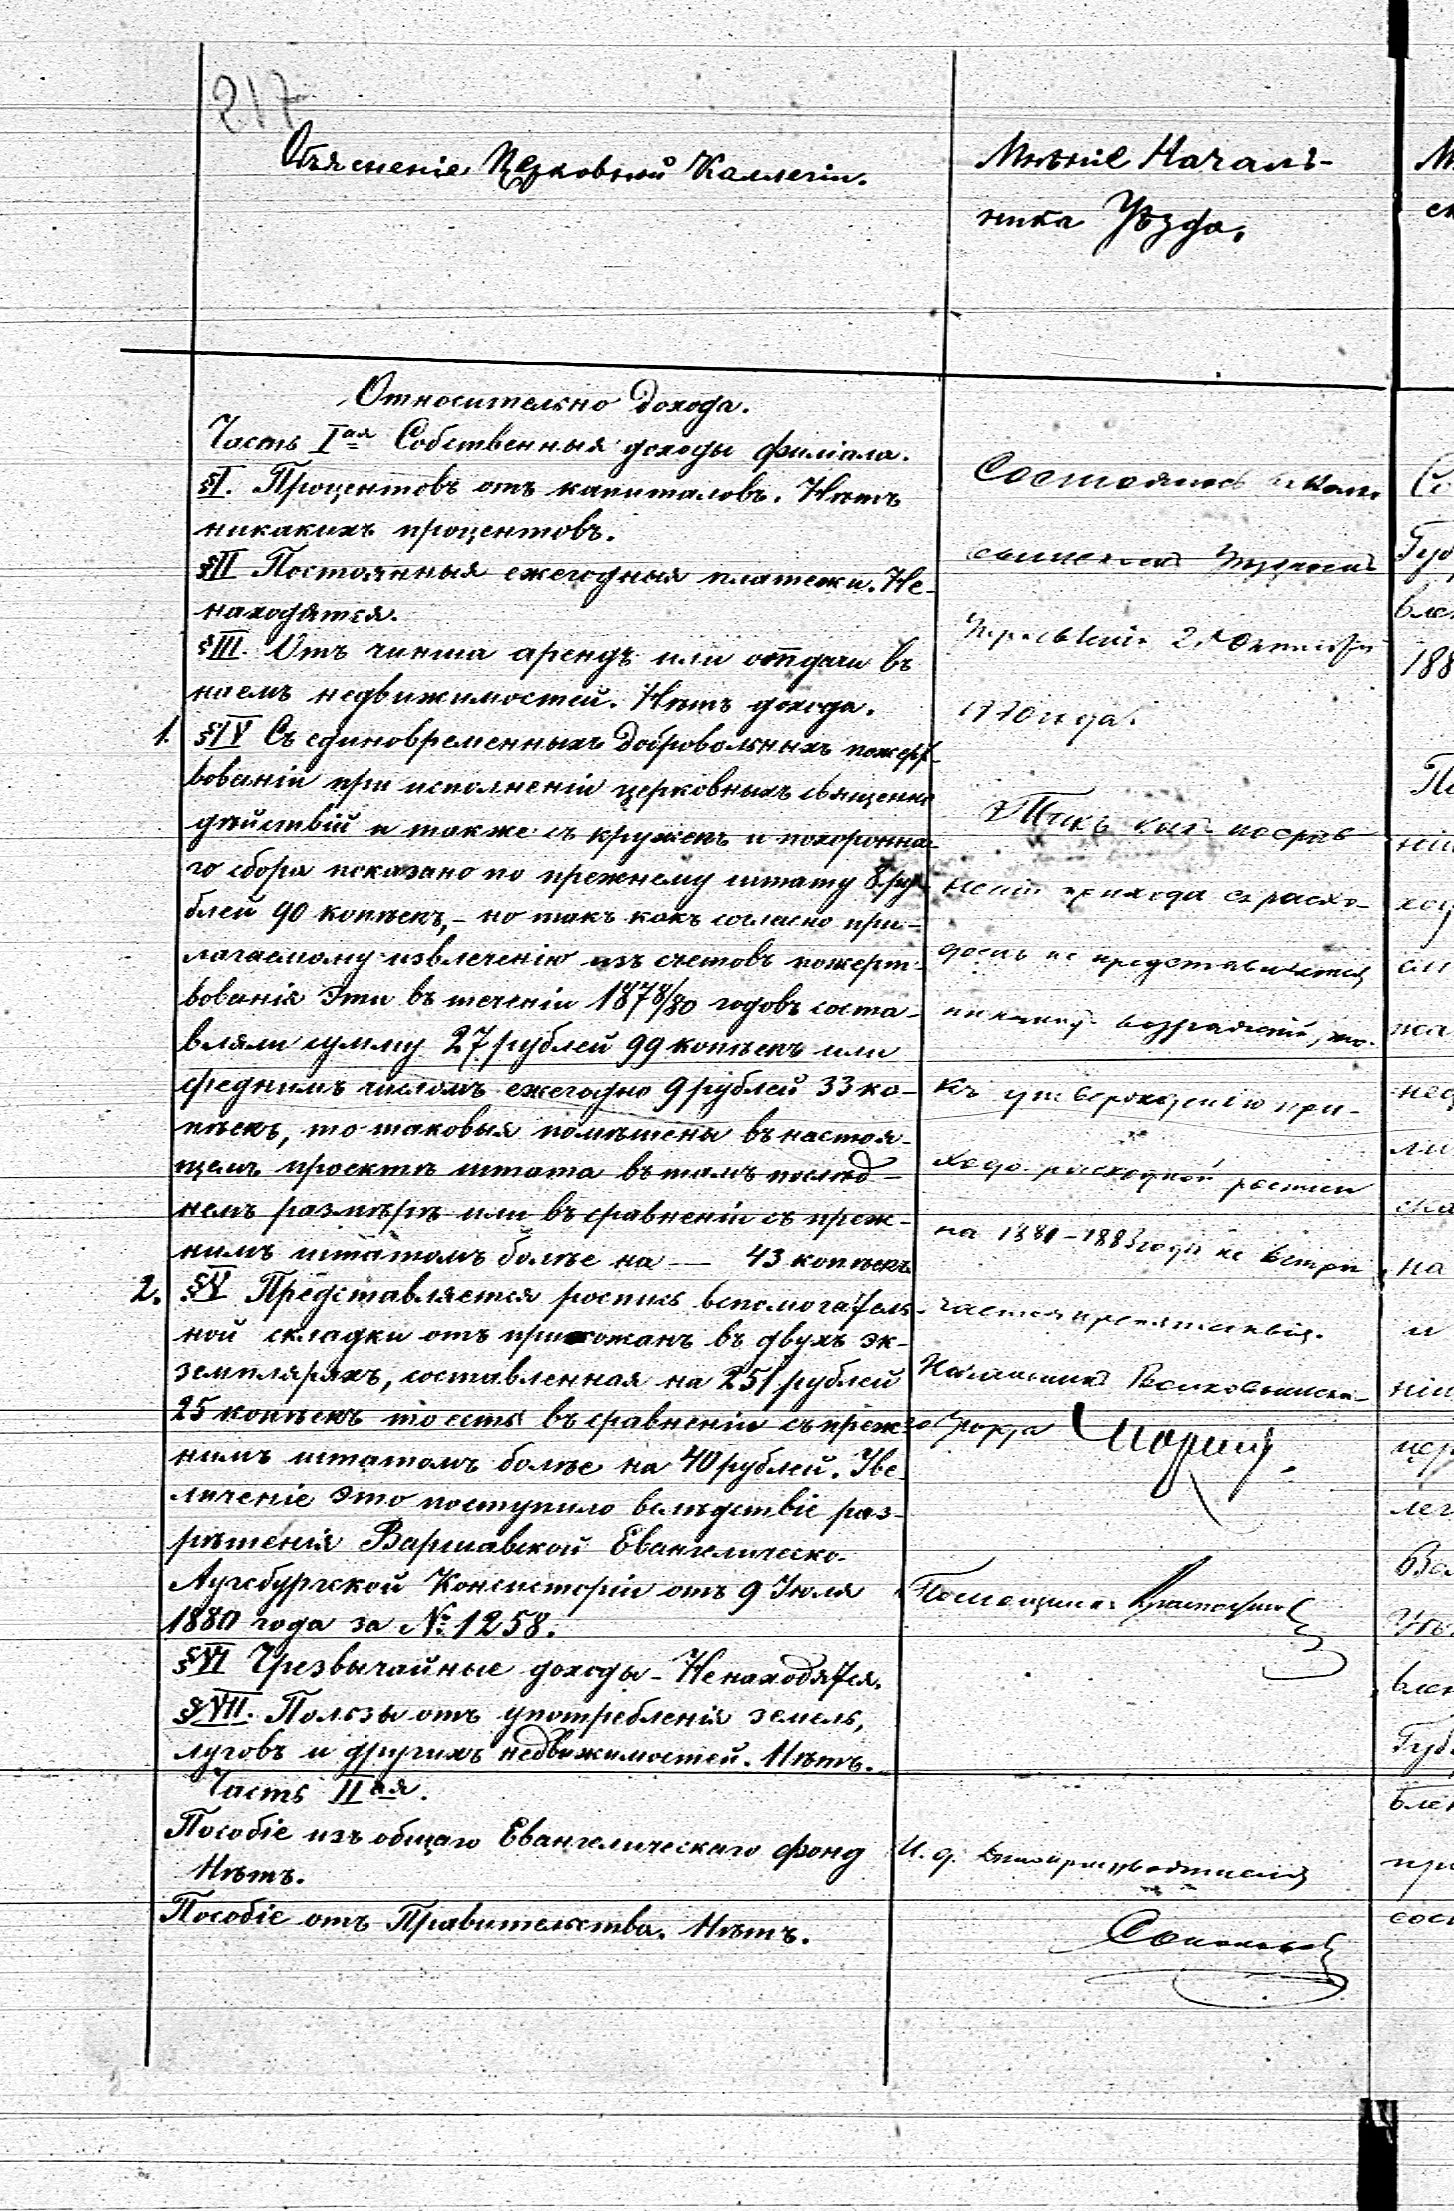 217
Объясненіе Церковной Каллегіи.
Относительно дохода.
Часть Iая Собственныя доходы филіала.
§I. Процентовъ отъ капиталовъ. Нѣтъ
никакихъ процентовъ.
§II Постоянныя ежегодныя платежи. Не-
находятся.
§III. Отъ чинша арендъ или отдачи въ
наемъ недвижимостей. Нѣтъ дохода.
1. §IV Съ единовременныхъ добровольныхъ пожерт-
вованій при исполненіи церковныхъ священно
дѣйствій и также съ кружекъ и похоронна-
го сбора показано по прежнему штату 8 ру-
блей 90 копѣекъ, - но такъ какъ согласно при-
лагаемому извлеченію изъ счетовъ пожерт-
вованія эти въ теченіи 1878/80 годовъ соста-
вляли сумму 27 рублей 99 копѣекъ или
среднимъ числомъ ежегодно 9 рублей 33 ко-
пѣекъ, то таковыя помѣщены въ настоя-
щемъ проектѣ штата въ томъ послѣд-
немъ размѣрѣ или въ сравненіи съ преж-
нимъ штатомъ болѣе на — 43 копѣекъ
2. §V Представляется роспись вспомогатель-
ной складки отъ прихожанъ въ двухъ эк-
земплярахъ, составленная на 251 рублей
25 копѣекъ то есть въ сравненіи съ преж-
нимъ штатомъ болѣе на 40 рублей. Уве-
личеніе это поступило вслѣдствіе раз-
рѣшенія Варшавской Евангелическо-
Аугсбургской Консисторіи отъ 9 Іюля
1880 года за № 1258.
§VI Чрезвычайные доходы - Ненаходятся.
§VII. Пользы отъ употребленія земель,
луговъ и другихъ недвижимостей. Нѣтъ.
Часть IIая.
Пособіе изъ общаго Евангелическаго фонд
Нѣтъ.
Пособіе отъ Правительства. Нѣтъ.
Мнѣніе Началь-
ника Уѣзда.
Состоялось
2
года.
Такъ какъ
прихода съ расхо-
домъ не представляется
возраженій, то
къ утвержденію при-
ходо-расходной росписи
на 1881-1883 года не встрѣ-
чается препятствія.
Начальникъ
Уѣзда
Помощникъ
И. д. Дѣлопроизводителя